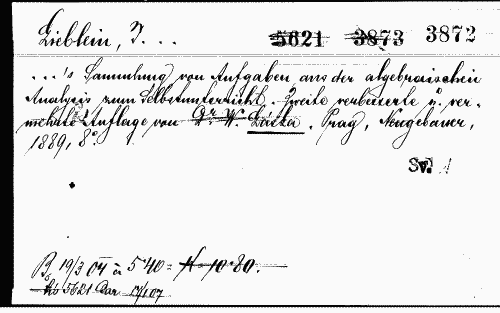 Lieblein, J. . . . 5621 3873 3872
. . .'s Sammlung von Aufgaben aus der algebraischen
Analysis zum Selbstunterricht. Zweite verbesserte u. ver-
mehrte Auflage von Dr. W. Láska. Prag, Neugebauer,
1889, 8°.
Sv. 1
19/3 04 à 5·40 = K 10·80.
5621 Dar 17/1 07